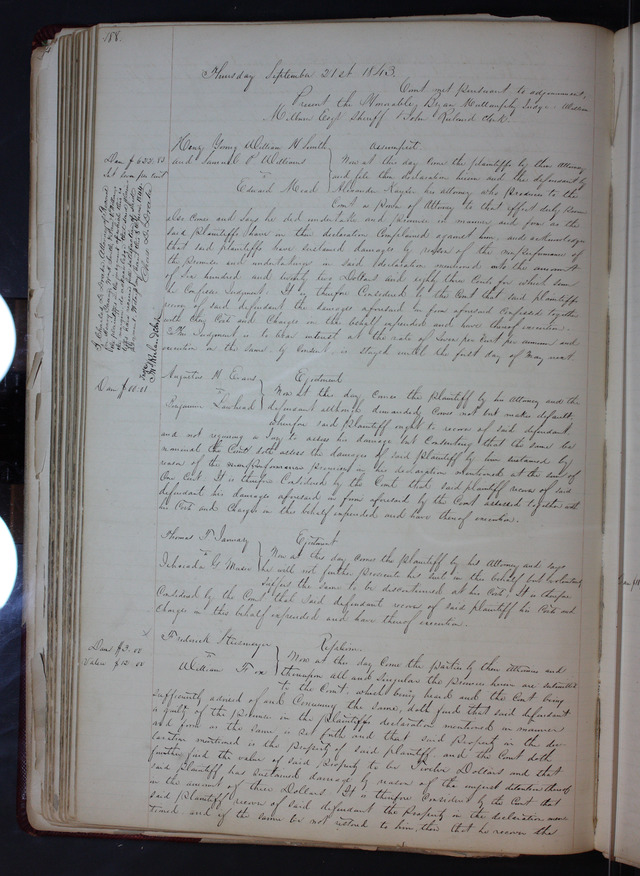 188.
Thursday September 21st 1843.
Court met pursuant to adjournment,
Present the Honorable Bryan Mullanphy Judge William
Milburn Esqr Sheriff & John Ruland Clerk.
Henry Young William H Smith
and Samuel P Williams
vs
Edward Mead
Assumpsit
Dam $622.83
Int from per cent
Now at this day Come the plaintiffs by their Attorney
and file their declaration herein and the defendant by
Alexander his attorney who produces to the
Court a Power of Attorney to that effect duly
also Comes and says he did undertake and promise in manner and form as the
said plaintiffs have in their declaration Complained against him, and acknowledges
that said plaintiffs have sustained damages by reason of the nonperformance of
the promises and undertakings in said declaration mentioned to the amount
of Six hundred and twenty two Dollars and eighty three Cents for which sum
he Confesses Judgment. It is therefore Considered by the Court that said plaintiffs
recover of said defendant the damages aforesaid in form aforesaid Confessed together
with their Costs and Charges in this behalf expended and have thereof execution.
This Judgment is to bear interest at the rate of per Cent per annum and
execution on the same by Consent is stayed until the first day of May next
Augustus H Evans
vs
Benjamin Lawhead
Ejectment
Dam $00.01
Now at this day comes the Plaintiff by his Attorney and the
defendant although demanded, Comes not but makes default;
wherefore said Plaintiff ought to recover of said defendant
and not requiring a Jury to assess his damage but Consenting that the same be
nominal the Court doth assess the damages of said plaintiff by him sustained by
reason of the premises in his declaration mentioned at the sum of
One Cent It is therefore Considered by the Court that said plaintiff recover of said
defendant his damages aforesaid in form aforesaid by the Court assessed together with
his Costs and Charges in this behalf expended and have thereof execution.
Thomas T January
vs
G Mason
Ejectment
Now at this day comes the Plaintiff by his Attorney and says
he will not further prosecute his suit in this behalf but voluntarily
suffers the same to be discontinued at his Cost; It is therefore
Considered by the Court that said defendant recover of said plaintiff his Costs and
Charges in this behalf expended and have thereof execution.
Frederick
vs
William Fox
Replevin.
Dam $3.00
Value $12.00
Now at this day Come the parties by their Attornies and
thereupon all and Singular the premises herein are submitted
to the Court: which being heard and the Court being
sufficiently advised of and Concerning the same, doth find that said defendant
is guilty of the premises in the plaintiffs declaration mentioned in manner
and form as the same is set forth and that said Property in the dec-
laration mentioned is the property of said plaintiff and the Court doth
further find the value of said property to be Twelve Dollars and that
said Plaintiff has sustained damage by reason of the unjust detention thereof
in the amount of three Dollars. It is therefore Considered by the Court that
said plaintiff recover of said defendant the Property in the declaration men-
tioned and if the same be not returned to him, then that he recover the